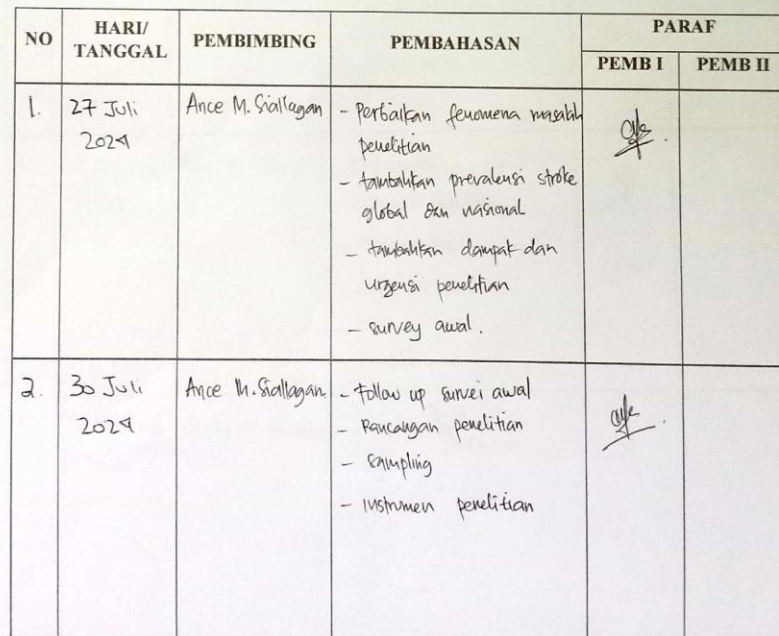 NO HARI/ TANGGAL PEMBIMBING PEMBAHASAN PARAF
PEMB I PEMB II
1. 27 Juli Ance M. Siallagan - Perbaikan fenomena masalah
2024 penelitian
- tambahkan prevalensi stroke
global dan nasional
- tambahkan dampak dan
urgensi penelitian
- survey awal.
2. 30 Juli Ance M. Siallagan - Follow up survei awal
2024 - Rancangan penelitian
- sampling
- instrumen penelitian